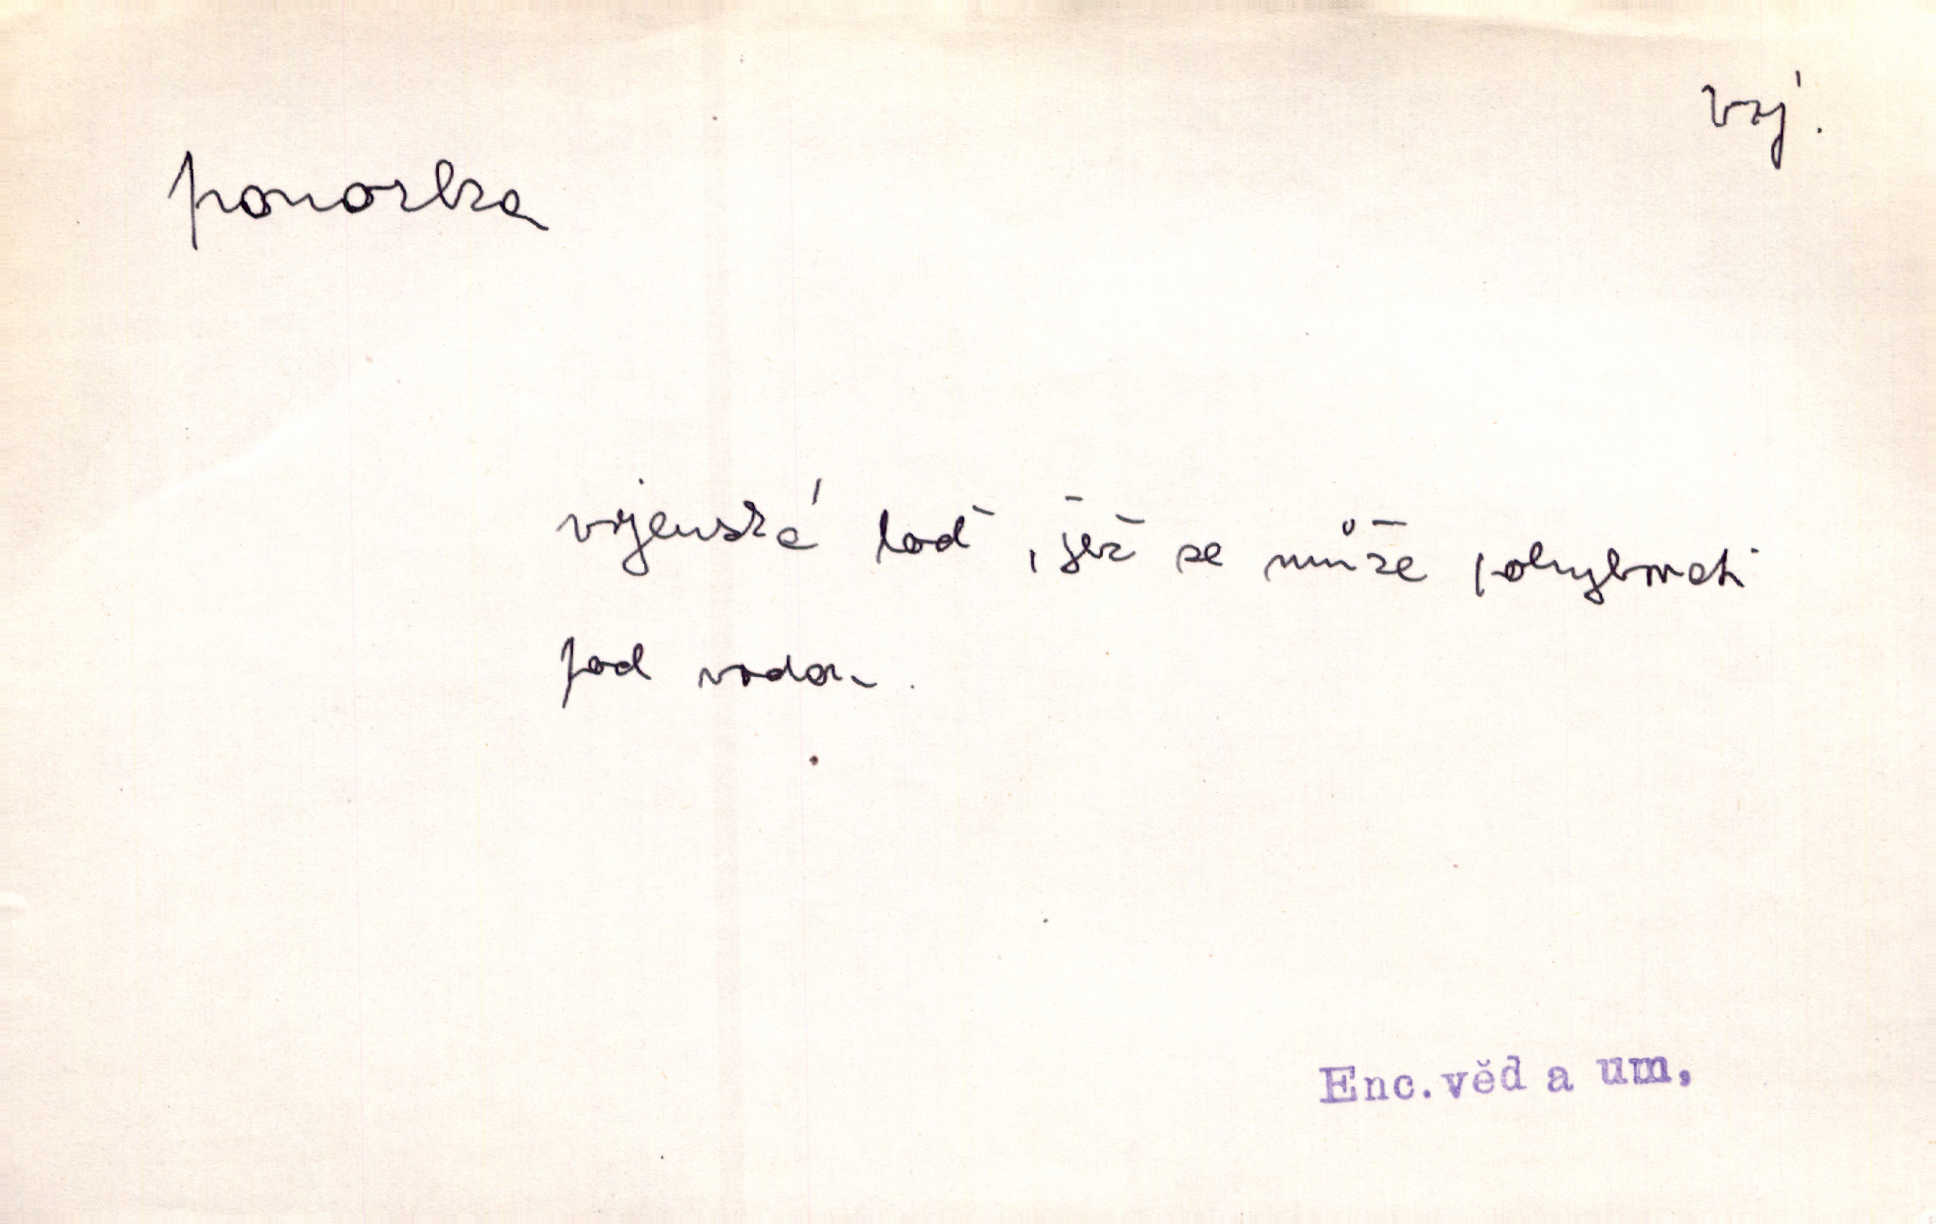 voj.
ponorka
vojenská loď, jež se může pohybovati
pod vodou.
Enc. věd a um.